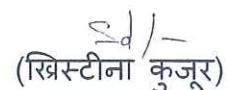 Sd/-
(ख्रिस्टीना कुजूर)